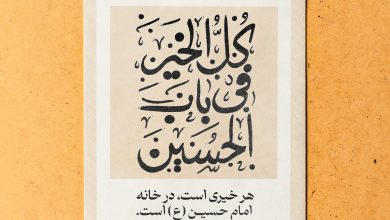 كُلُّ الخَيْرِ
فِي بَابِ
الحُسَيْن
هر خیری است، در خانه
امام حسیـن (ع) است.